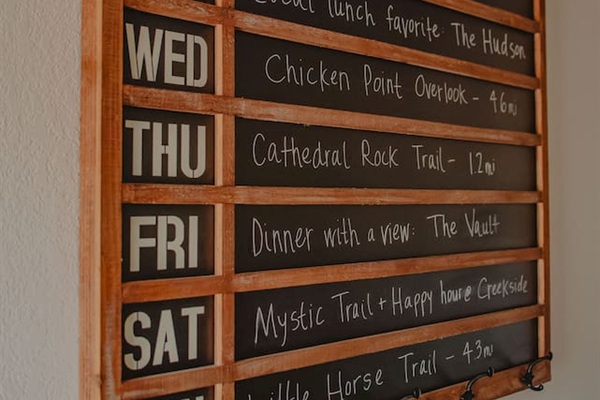 Local lunch favorite: The Hudson
WED
Chicken Point Overlook - 46mi
THU
Cathedral Rock Trail - 1.2mi
FRI
Dinner with a view: The Vault
SAT
Mystic Trail + Happy hour@ Creekside
Little Horse Trail - 4.3mi